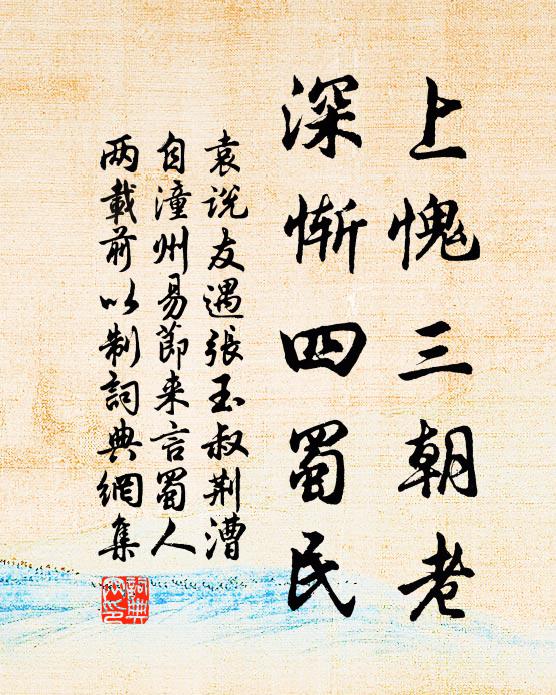 上愧三朝老
深惭四蜀民
袁说友遇張玉叔荆漕
自潼州易節来言蜀人
两載前以制詞典網集
詞典网印